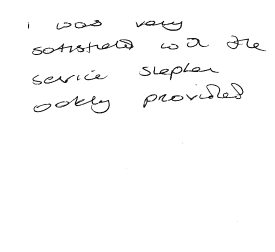 i was very
satisfied with the
service Stephen
oakley provided